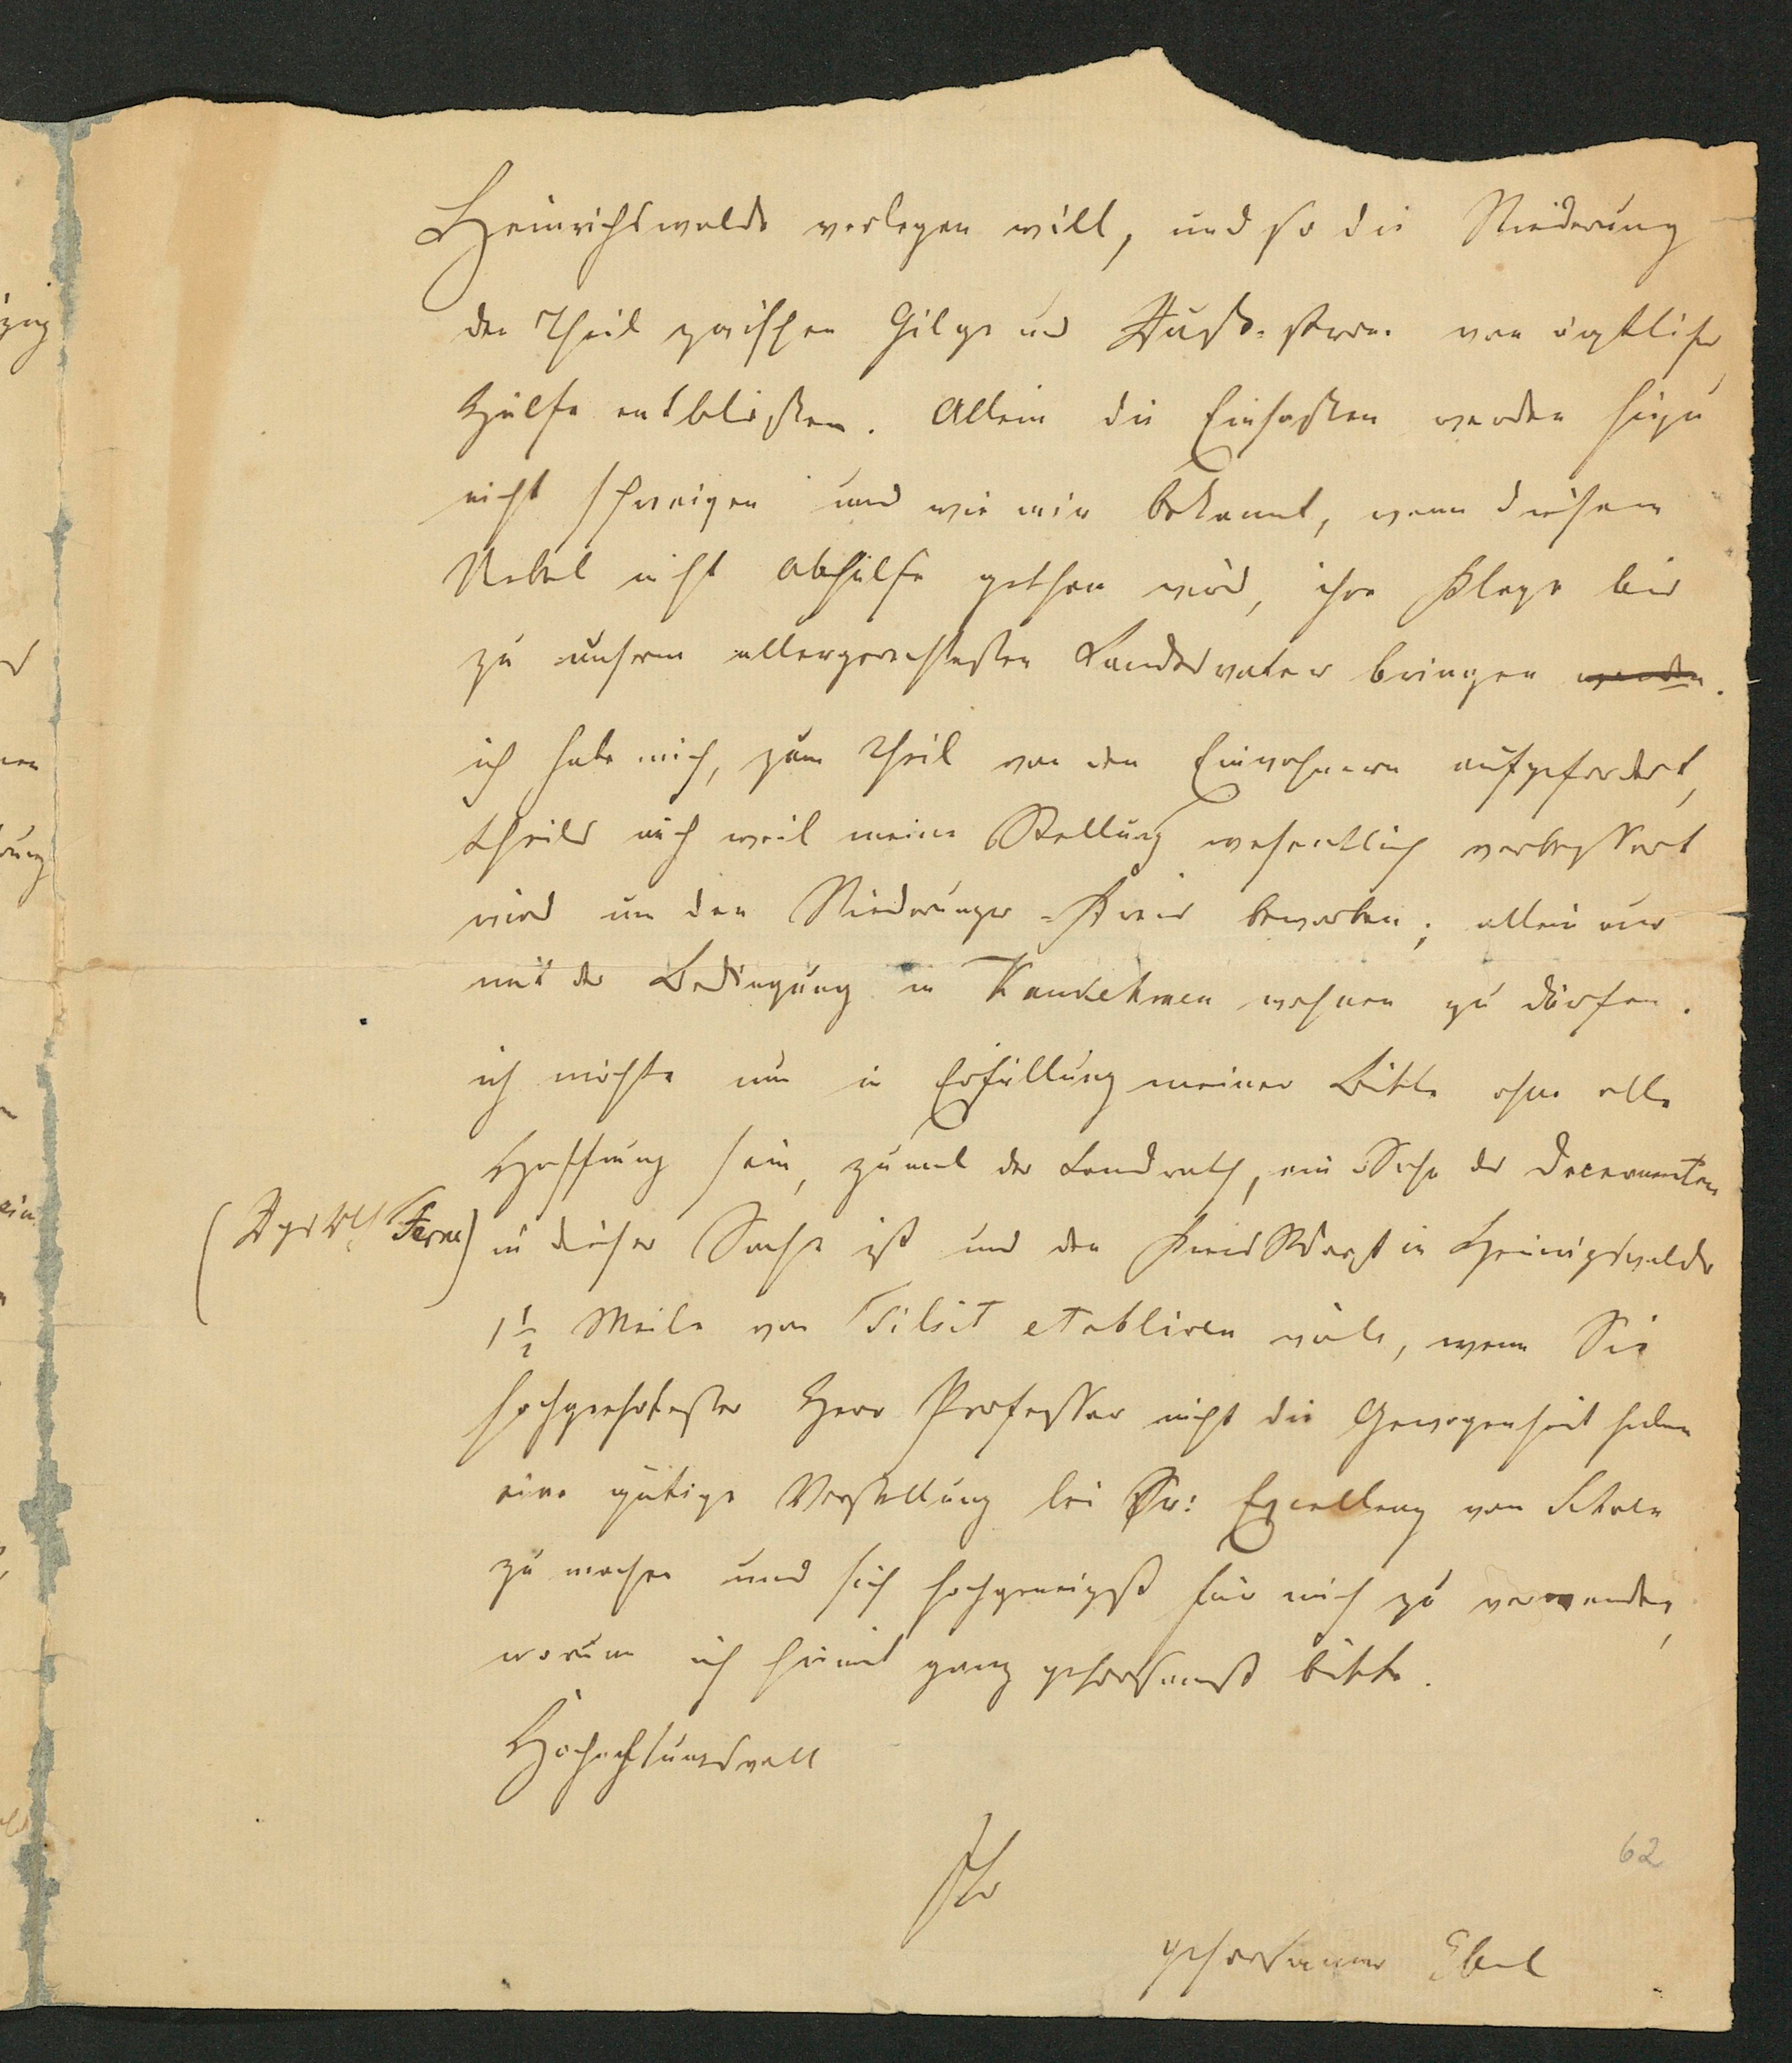 Heinrichswalde verlegen will, und so die Niederung
den Theil zwischen Gilge und Ruß-strom von ärztlicher
Hülfe entblößen. Allein die Einsaßen werden hiezu
nicht schweigen und wie mir bekannt, wenn diesem
Uebel nicht abhülfe gethan wird, ihre Klage bis
zu unserm allergerechtesten Landesvater bringen werden.
ich habe mich, zum Theil von den Einwohnern aufgefordert,
theils auch weil meine Stellung wesentlich verbessert
wird um den Niederunger-Kreis beworben; allein nur
mit der Bedingung in Kaukehmen wohnen zu dürfen.
ich möchte nun in Erfüllung meiner Bitte ohne alle
Hoffnung sein, zumal der Landrath, ein Sohn des Decernenten
in dieser Sache ist und den Kreis Arzt in Heinrichswalde
1½ Meile von Tilsit etabliren will, wenn Sie
hochgeehrtester Herr Professor nicht die Gewogenheit haben
eine gütige Vorstellung bei Sr: Excellenz von Schoen
zu machen und sich hochgeneigst für mich zu verwenden,
worum ich hiemit ganz gehorsamst bitte.
Hochachtungsvoll
Ihr
gehorsamer Ebel
62